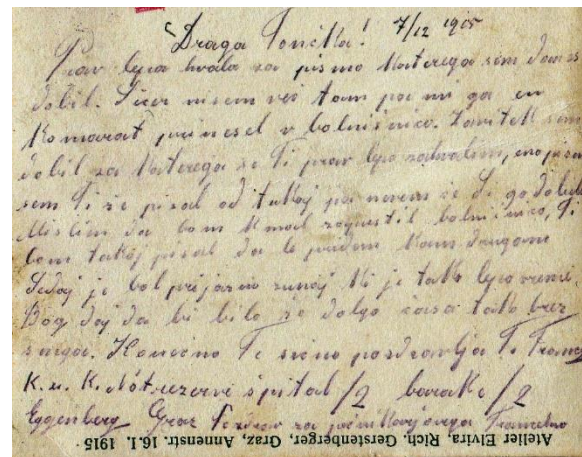 Draga Tončka! 7/12 1915
Prav lepa hvala za pismo katerega sem danes
dobil. Sicer nisem več tam pa mi ga en
kamarat prinesel v bolnišnico. Zavitek sem
dobil za katerega se Ti prav lepo zahvalim, eno pismo
sem Ti že pisal od tukaj pa nevem če si ga dobila
Mislim da bom kmal zapustil bolnišnico, Ti
bom takoj pisal da le pridem kam drugam
Sedaj je bol prijazno zunaj ki je tako lepo vreme.
Bog daj da bi bilo še dolgo časa tako brez
snega. Končno Te srčno pozdravlja Ti Franc
K. u. K. rezervni špital /2 barake /2
Eggenberg Graz Pozdrav za
Atelier Elvira, Rich. Gerstenberger, Graz, Annenstr. 16.I. 1915